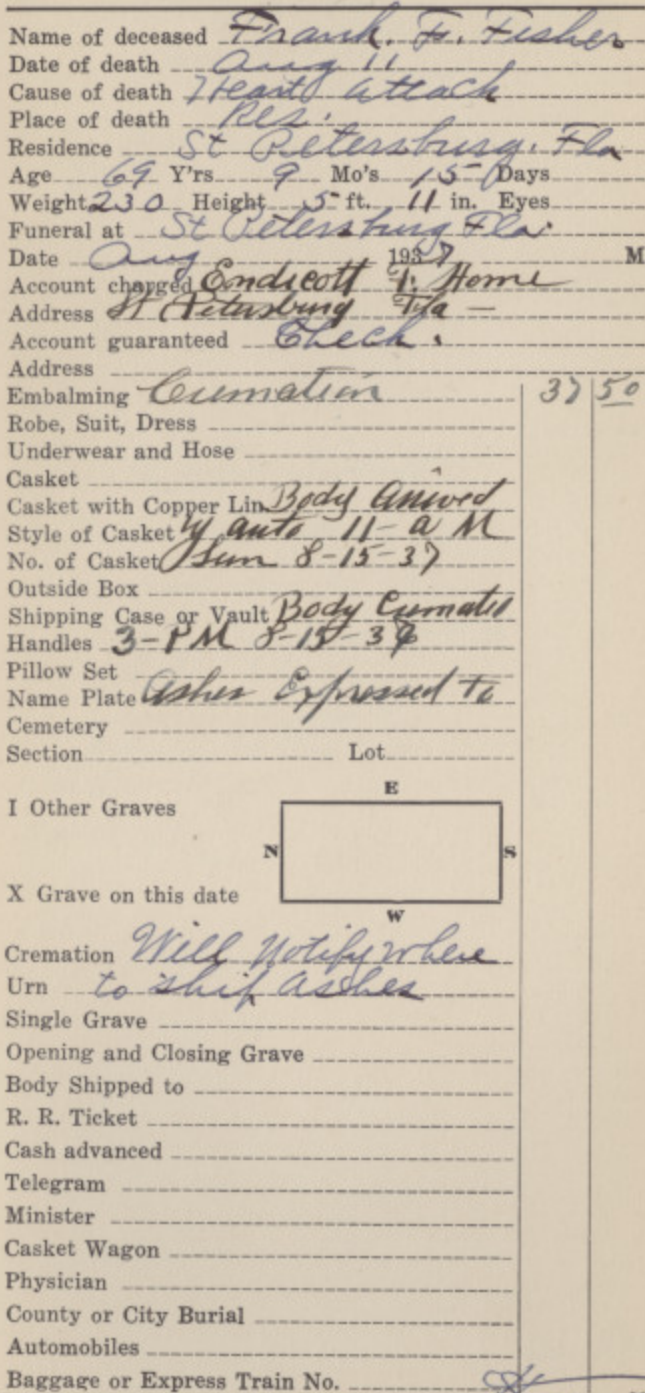 Name of deceased Frank. F. Fisher
Date of death Aug 11
Cause of death Heart attack
Place of death Res.
Residence St Petersburg. Fla
Age 69 Y'rs 9 Mo's 15 Days
Weight 230 Height 5 ft. 11 in. Eyes
Funeral at St Petersburg Fla.
Date Aug 1937 M
Account charged Endicott F. Home
Address St Petersburg Fla —
Account guaranteed Check.
Address
Embalming Cremation 37 50
Robe, Suit, Dress
Underwear and Hose
Casket
Casket with Copper Lin Body arrived
Style of Casket by auto 11 - a M
No. of Casket Sun 8-15-37
Outside Box
Shipping Case or Vault Body Cremated
Handles 3-PM 8-15-37
Pillow Set
Name Plate Ashes Expressed to
Cemetery
Section Lot
E
I Other Graves
N S
X Grave on this date
W
Cremation Will notify where
Urn to ship ashes
Single Grave
Opening and Closing Grave
Body Shipped to
R. R. Ticket
Cash advanced
Telegram
Minister
Casket Wagon
Physician
County or City Burial
Automobiles
Baggage or Express Train No.